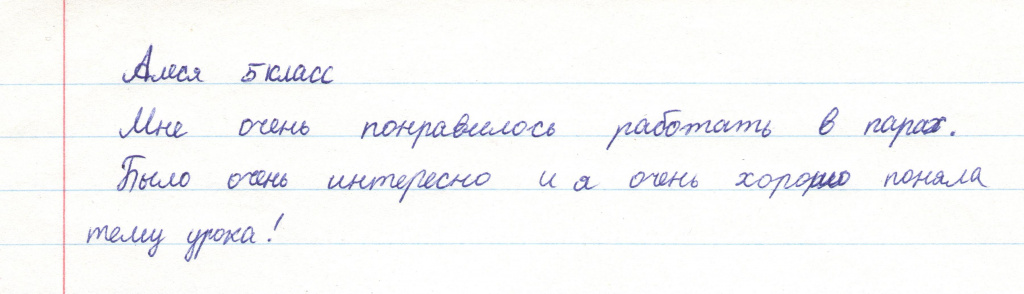 Алеся 5 класс
Мне очень понравилось работать в парах.
Было очень интересно и я очень хорошо поняла
тему урока!